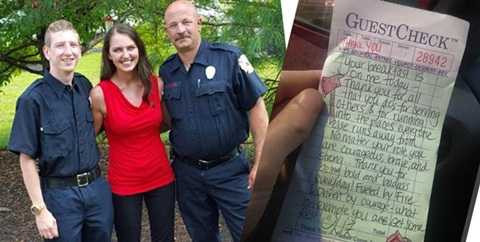 GUESTCHECK™
Thank you
28942
Your breakfast is
on me today -
Thank you for all
that you do; for serving
others & for running
into the places everyone
else runs away from.
No matter your role, you
are courageous, brave, and
strong. Thank you for
being bold and badass
everyday! Fueled by fire
driven by courage - what
an example you are. Get some